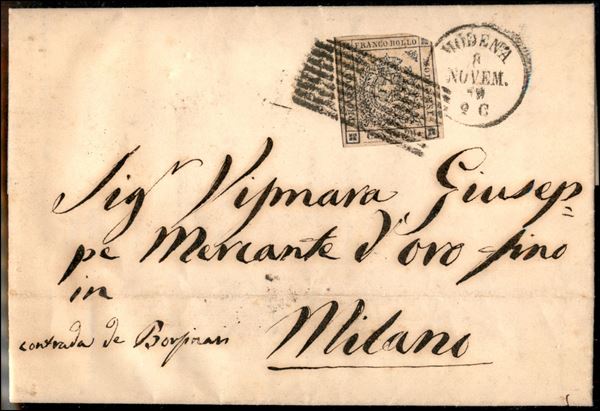 FRANCO BOLLO
MODENA
8
NOVEM.
59
2 C
Sigr Vipmara Giusep=
pe Mercante d'oro fino
in
contrada de Borpnari
Milano